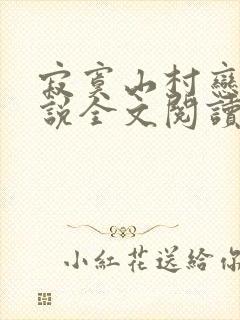 寂寞山村戀
說全文閱讀
小紅花送給你